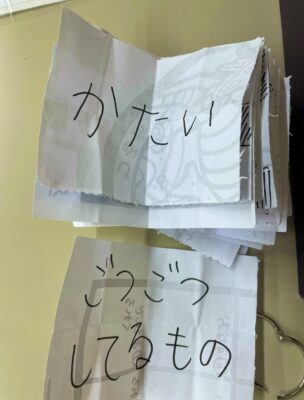 かたい
ごつごつ
してるもの